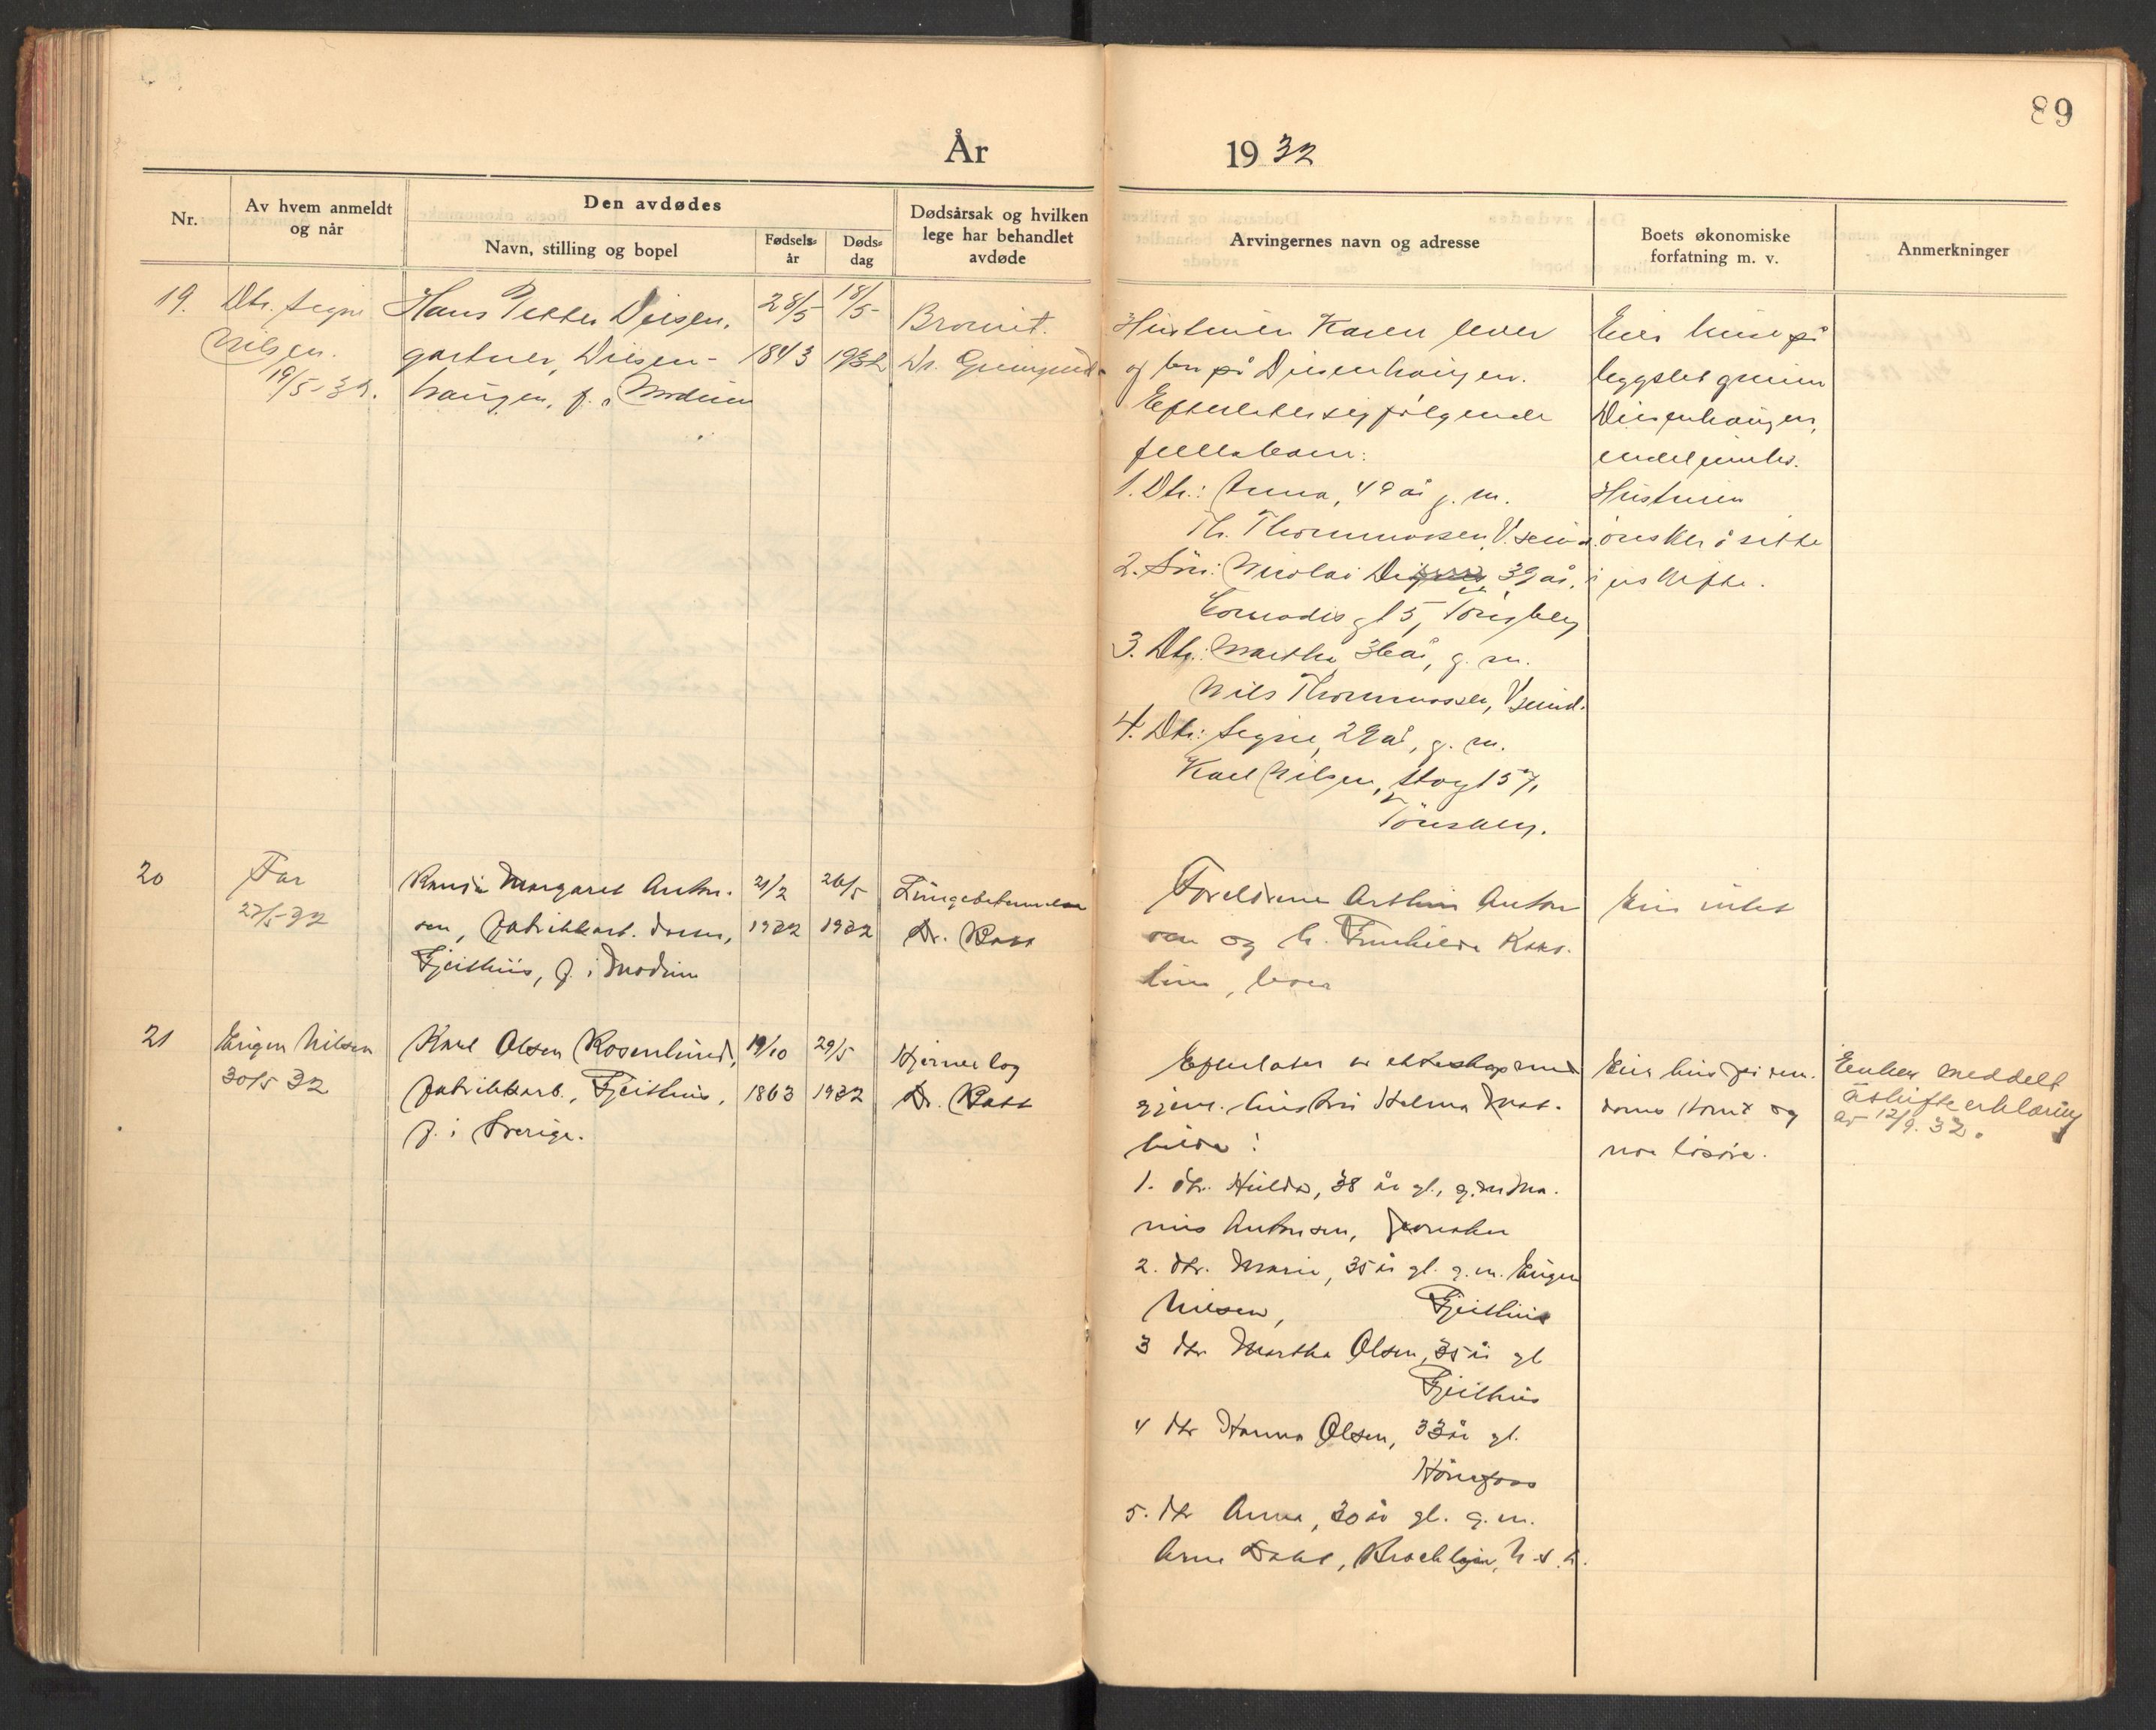 89
År 1932
Nr.
Av hvem anmeldt
og når
Den avdødes
Navn, stilling og bopel
Fødsels-
år
Døds-
dag
Dødsårsak og hvilken
lege har behandlet
avdøde
Arvingernes navn og adresse
Boets økonomiske
forfatning m. v.
Anmerkninger
19.
Dtr. Signe
Nilsen.
19/5-32.
Hans Petter Diesen,
gartner, Diesen-
haugen, f. i Modum
28/5
1843
18/5-
1932
Bronkit.
Dr.
Hustruen Karen lever
og bor på Diesenhaugen.
Efterlater sig følgende
fellesbarn:
1. Dtr.: Anna, 49 år g. m.
Th. Thommassen,
2. Søn: Nicolai Diesen, 39 år,
Conradis gt 5, Tønsberg
3. Dtr.: Martha 36 år, g. m.
Nils Thommassen,
4. Dtr.: Signe, 29 år, g. m.
Karl Nilsen,
Tønsberg.
Eier huse på
bygslet grunn
Diesenhaugen,
endel innbo.
Hustruen
ønsker å sitte
i uskifte.
20
Far
27/5-32
Randi Margaret Anton-
sen, fabrikkarb. datter,
Geithus, f. i Modum
21/2
1932
26/5
1932
Lungebetennelse
Dr.
Foreldrene Arthur Anton
sen og h. Karo-
line, lever
Eier intet
21
Eugen Nilsen
30/5 32
Karl Olsen Rosenlund,
fabrikkarb., Geithus,
f. i Sverige.
19/10
1863
29/5
1932
Hjerneslag
Dr.
Efterlater av ekteskap med
gjenl. hustru Helma Mat-
hilde:
1. dtr. Hulda, 38 år gl., g.m. Ma-
rius Antonsen,
2. dtr. Marie, 35 år gl. g.m. Eugen
Nilsen, Geithus
3 dtr Martha Olsen, 35 år gl
Geithus
4 dtr Hanna Olsen, 33 år gl.
Hønefoss
5. dtr Anna, 30 år gl. g.m.
Arne Dahl,
Eier hus på en-
doms tomt og
noe løsøre.
Enken meddelt
uskifteerklæring
av 12/9. 32.